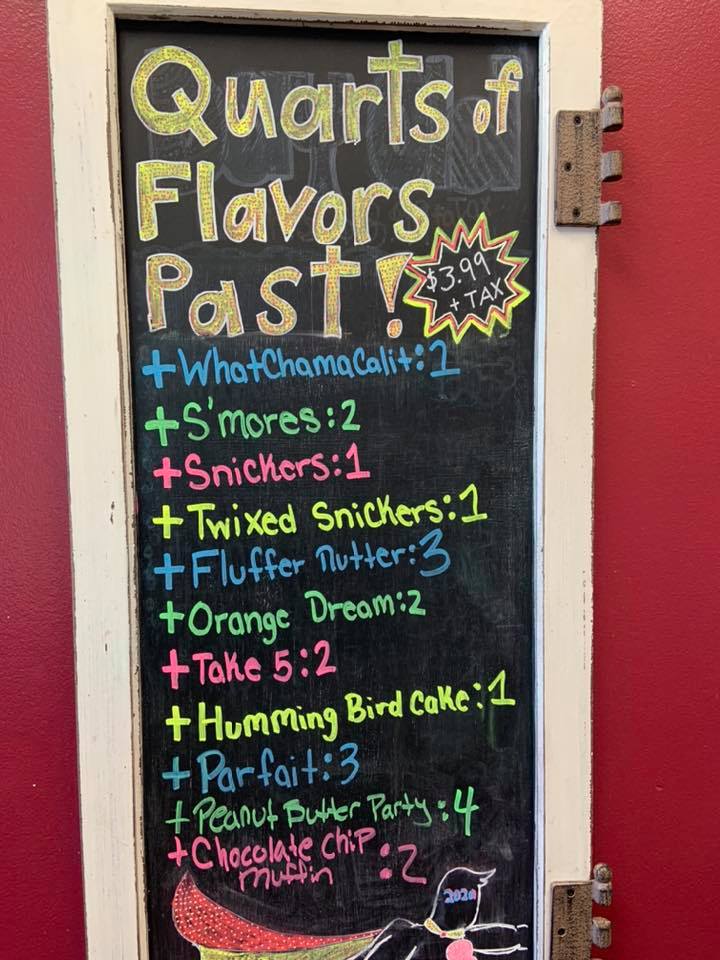 Quarts of
Flavors
Past!
$3.99
+ TAX
+WhatChamaCalit:2
+S'mores:2
+Snickers:1
+Twixed Snickers:1
+Fluffer Nutter:3
+Orange Dream:2
+Take 5:2
+Humming Bird Cake:1
+Parfait:3
+Peanut Butter Party:4
+Chocolate Chip
Muffin :2
2020